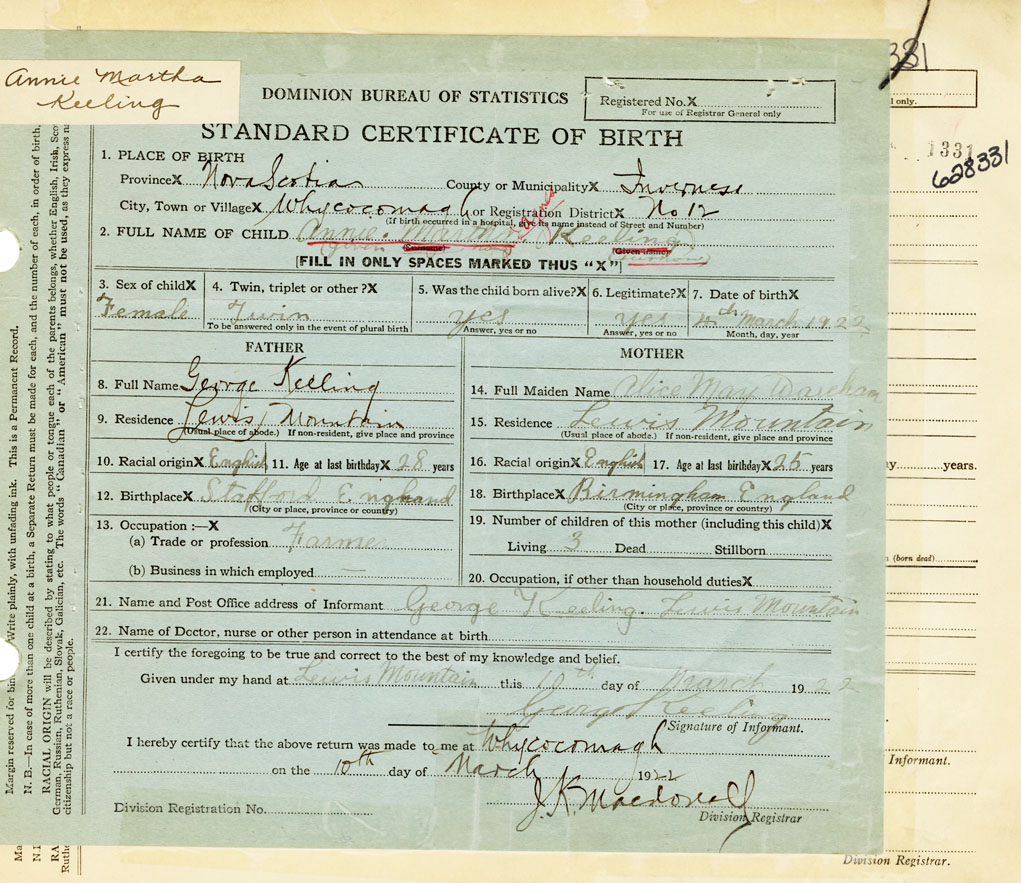 Annie Martha
Keeling
DOMINION BUREAU OF STATISTICS
Registered No. X
For use of Registrar General only
STANDARD CERTIFICATE OF BIRTH
1. PLACE OF BIRTH
Province X Nova Scotia County or Municipality X Inverness
City, Town or Village X Whycocomagh or Registration District X No 12
(If birth occurred in a hospital, give its name instead of Street and Number)
2. FULL NAME OF CHILD Annie Martha Keeling
(Surname) (Given name)
given Surname
[FILL IN ONLY SPACES MARKED THUS "X"]
3. Sex of child X Female
4. Twin, triplet or other ? X Twin
To be answered only in the event of plural birth
5. Was the child born alive? X yes
Answer, yes or no
6. Legitimate? X yes
Answer, yes or no
7. Date of birth X March 1922
Month, day, year
FATHER
8. Full Name George Keeling
9. Residence Lewis Mountain
(Usual place of abode.) If non-resident, give place and province
10. Racial origin X English 11. Age at last birthday X 28 years
12. Birthplace X Stafford England
(City or place, province or country)
13. Occupation :— X
(a) Trade or profession Farmer
(b) Business in which employed —
MOTHER
14. Full Maiden Name Alice May Wareham
15. Residence Lewis Mountain
(Usual place of abode.) If non-resident, give place and province
16. Racial origin X English 17. Age at last birthday X 25 years
18. Birthplace X Birmingham England
(City or place, province or country)
19. Number of children of this mother (including this child) X
Living 3 Dead Stillborn
20. Occupation, if other than household duties X
21. Name and Post Office address of Informant George Keeling. Lewis Mountain
22. Name of Doctor, nurse or other person in attendance at birth
I certify the foregoing to be true and correct to the best of my knowledge and belief.
Given under my hand at Lewis Mountain this 10th day of March 1922
George Keeling
Signature of Informant.
I hereby certify that the above return was made to me at Whycocomagh
on the 10th day of March 1922
J. K. Macdonald
Division Registrar
Division Registration No.
Margin reserved for bin Write plainly, with unfading ink. This is a Permanent Record.
N. B.—In case of more than one child at a birth, a Separate Return must be made for each, and the number of each, in order of birth,
RACIAL ORIGIN will be described by stating to what people or tongue each of the parents belongs, whether English, Irish, Sco
German, Russian, Ruthenian, Slovak, Galician, etc. The words "Canadian" or "American" must not be used, as they express n
citizenship but not a race or people.
Ma
N.
RA
Ruthe
331
l only.
1331
628331
y. years.
(born dead)
Informant.
Division Registrar.